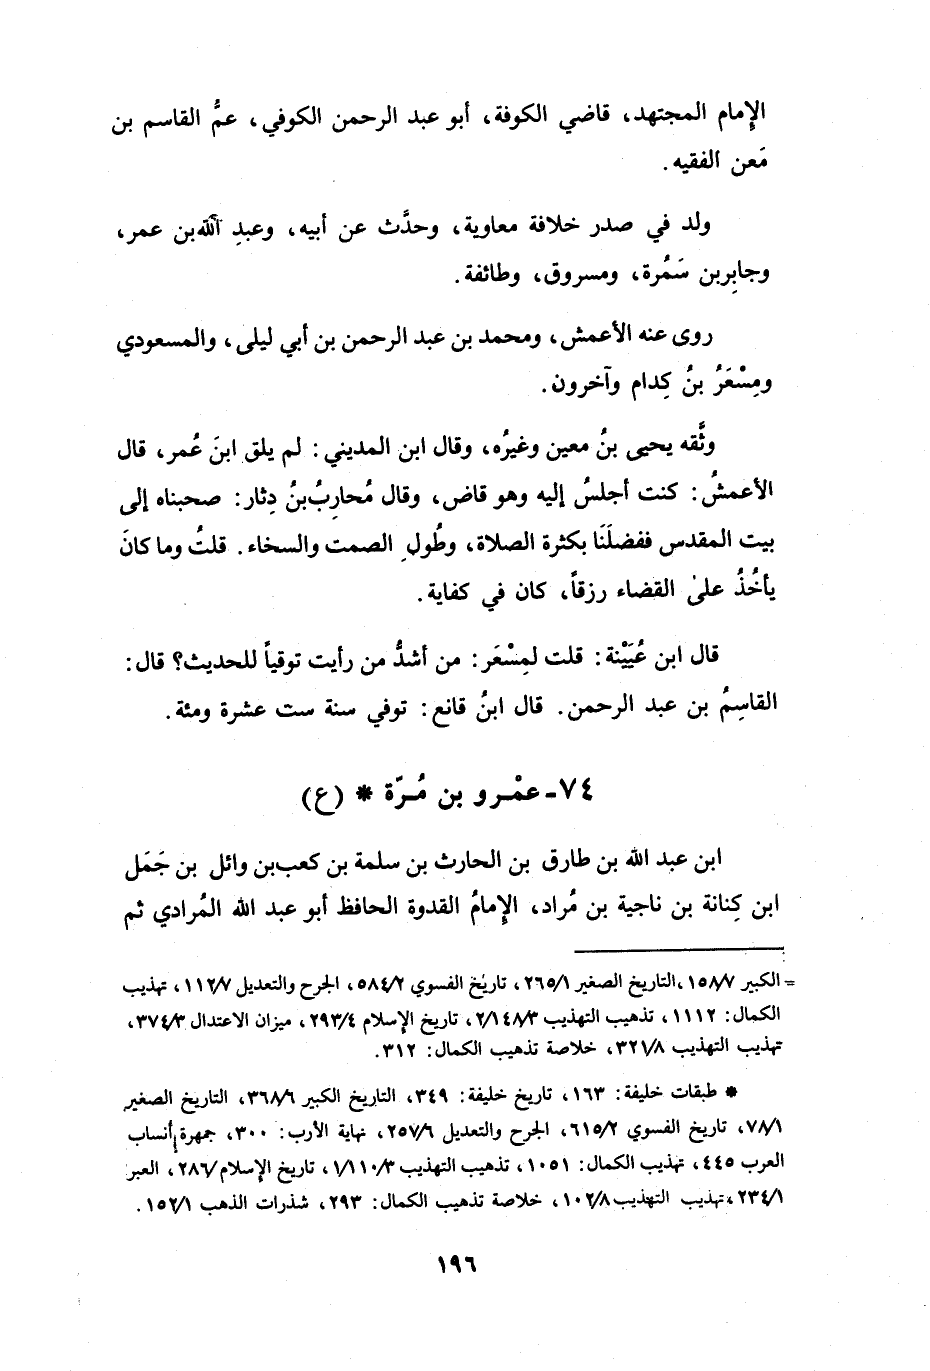 الإمام المجتهد، قاضي الكوفة، أبو عبد الرحمن الكوفي، عمُّ القاسم بن
مَعن الفقيه.
ولد في صدر خلافة معاوية، وحدَّث عن أبيه، وعبدِ الله بن عمر،
وجابِر بن سَمُرة، ومسروق، وطائفة.
روى عنه الأعمش، ومحمد بن عبد الرحمن بن أبي ليلى، والمسعودي
ومِسْعَرُ بنُ كِدام وآخرون.
وثَّقه يحيى بنُ معين وغيرُه، وقال ابن المديني: لم يلق ابنَ عُمر، قال
الأعمشُ: كنت أجلسُ إليه وهو قاض، وقال مُحارِبُ بنُ دِثار: صحبناه إلى
بيت المقدس ففضلَنَا بكثرة الصلاة، وطُولِ الصمت والسخاء. قلتُ وما كانَ
يأخُذُ على القضاء رزقاً، كان في كفاية.
قال ابن عُيَيْنة: قلت لمِسْعَر: من أشدُّ من رأيت توقياً للحديث؟ قال:
القاسِمُ بن عبد الرحمن. قال ابنُ قانع: توفي سنة ست عشرة ومئة.
٧٤ - عمْرو بن مُرّة * (ع)
ابن عبد الله بن طارق بن الحارث بن سلمة بن كعب بن وائل بن جَمَل
ابن كِنانة بن ناجية بن مُراد، الإمامُ القدوة الحافظ أبو عبد الله المُرادي ثم
= الكبير ١٥٨/٧، التاريخ الصغير ٢٦٥/١، تاريخ الفسوي ٥٨٤/٢، الجرح والتعديل ١١٢/٧، تهذيب
الكمال: ١١١٢، تذهيب التهذيب ٢/١٤٨/٣، تاريخ الإسلام ٢٩٣/٤، ميزان الاعتدال ٣٧٤/٣،
تهذيب التهذيب ٣٢١/٨، خلاصة تذهيب الكمال: ٣١٢.
* طبقات خليفة: ١٦٣، تاريخ خليفة: ٣٤٩، التاريخ الكبير ٣٦٨/٦، التاريخ الصغير
٧٨/١، تاريخ الفسوي ٦١٥/٢، الجرح والتعديل ٢٥٧/٦، نهاية الأرب: ٣٠٠، جمهرة أنساب
العرب ٤٤٥، تهذيب الكمال: ١٠٥١، تذهيب التهذيب ١/١١٠/٣، تاريخ الإسلام/٢٨٦، العبر
٢٣٤/١، تهذيب التهذيب ١٠٢/٨، خلاصة تذهيب الكمال: ٢٩٣، شذرات الذهب ١٥٢/١.
١٩٦